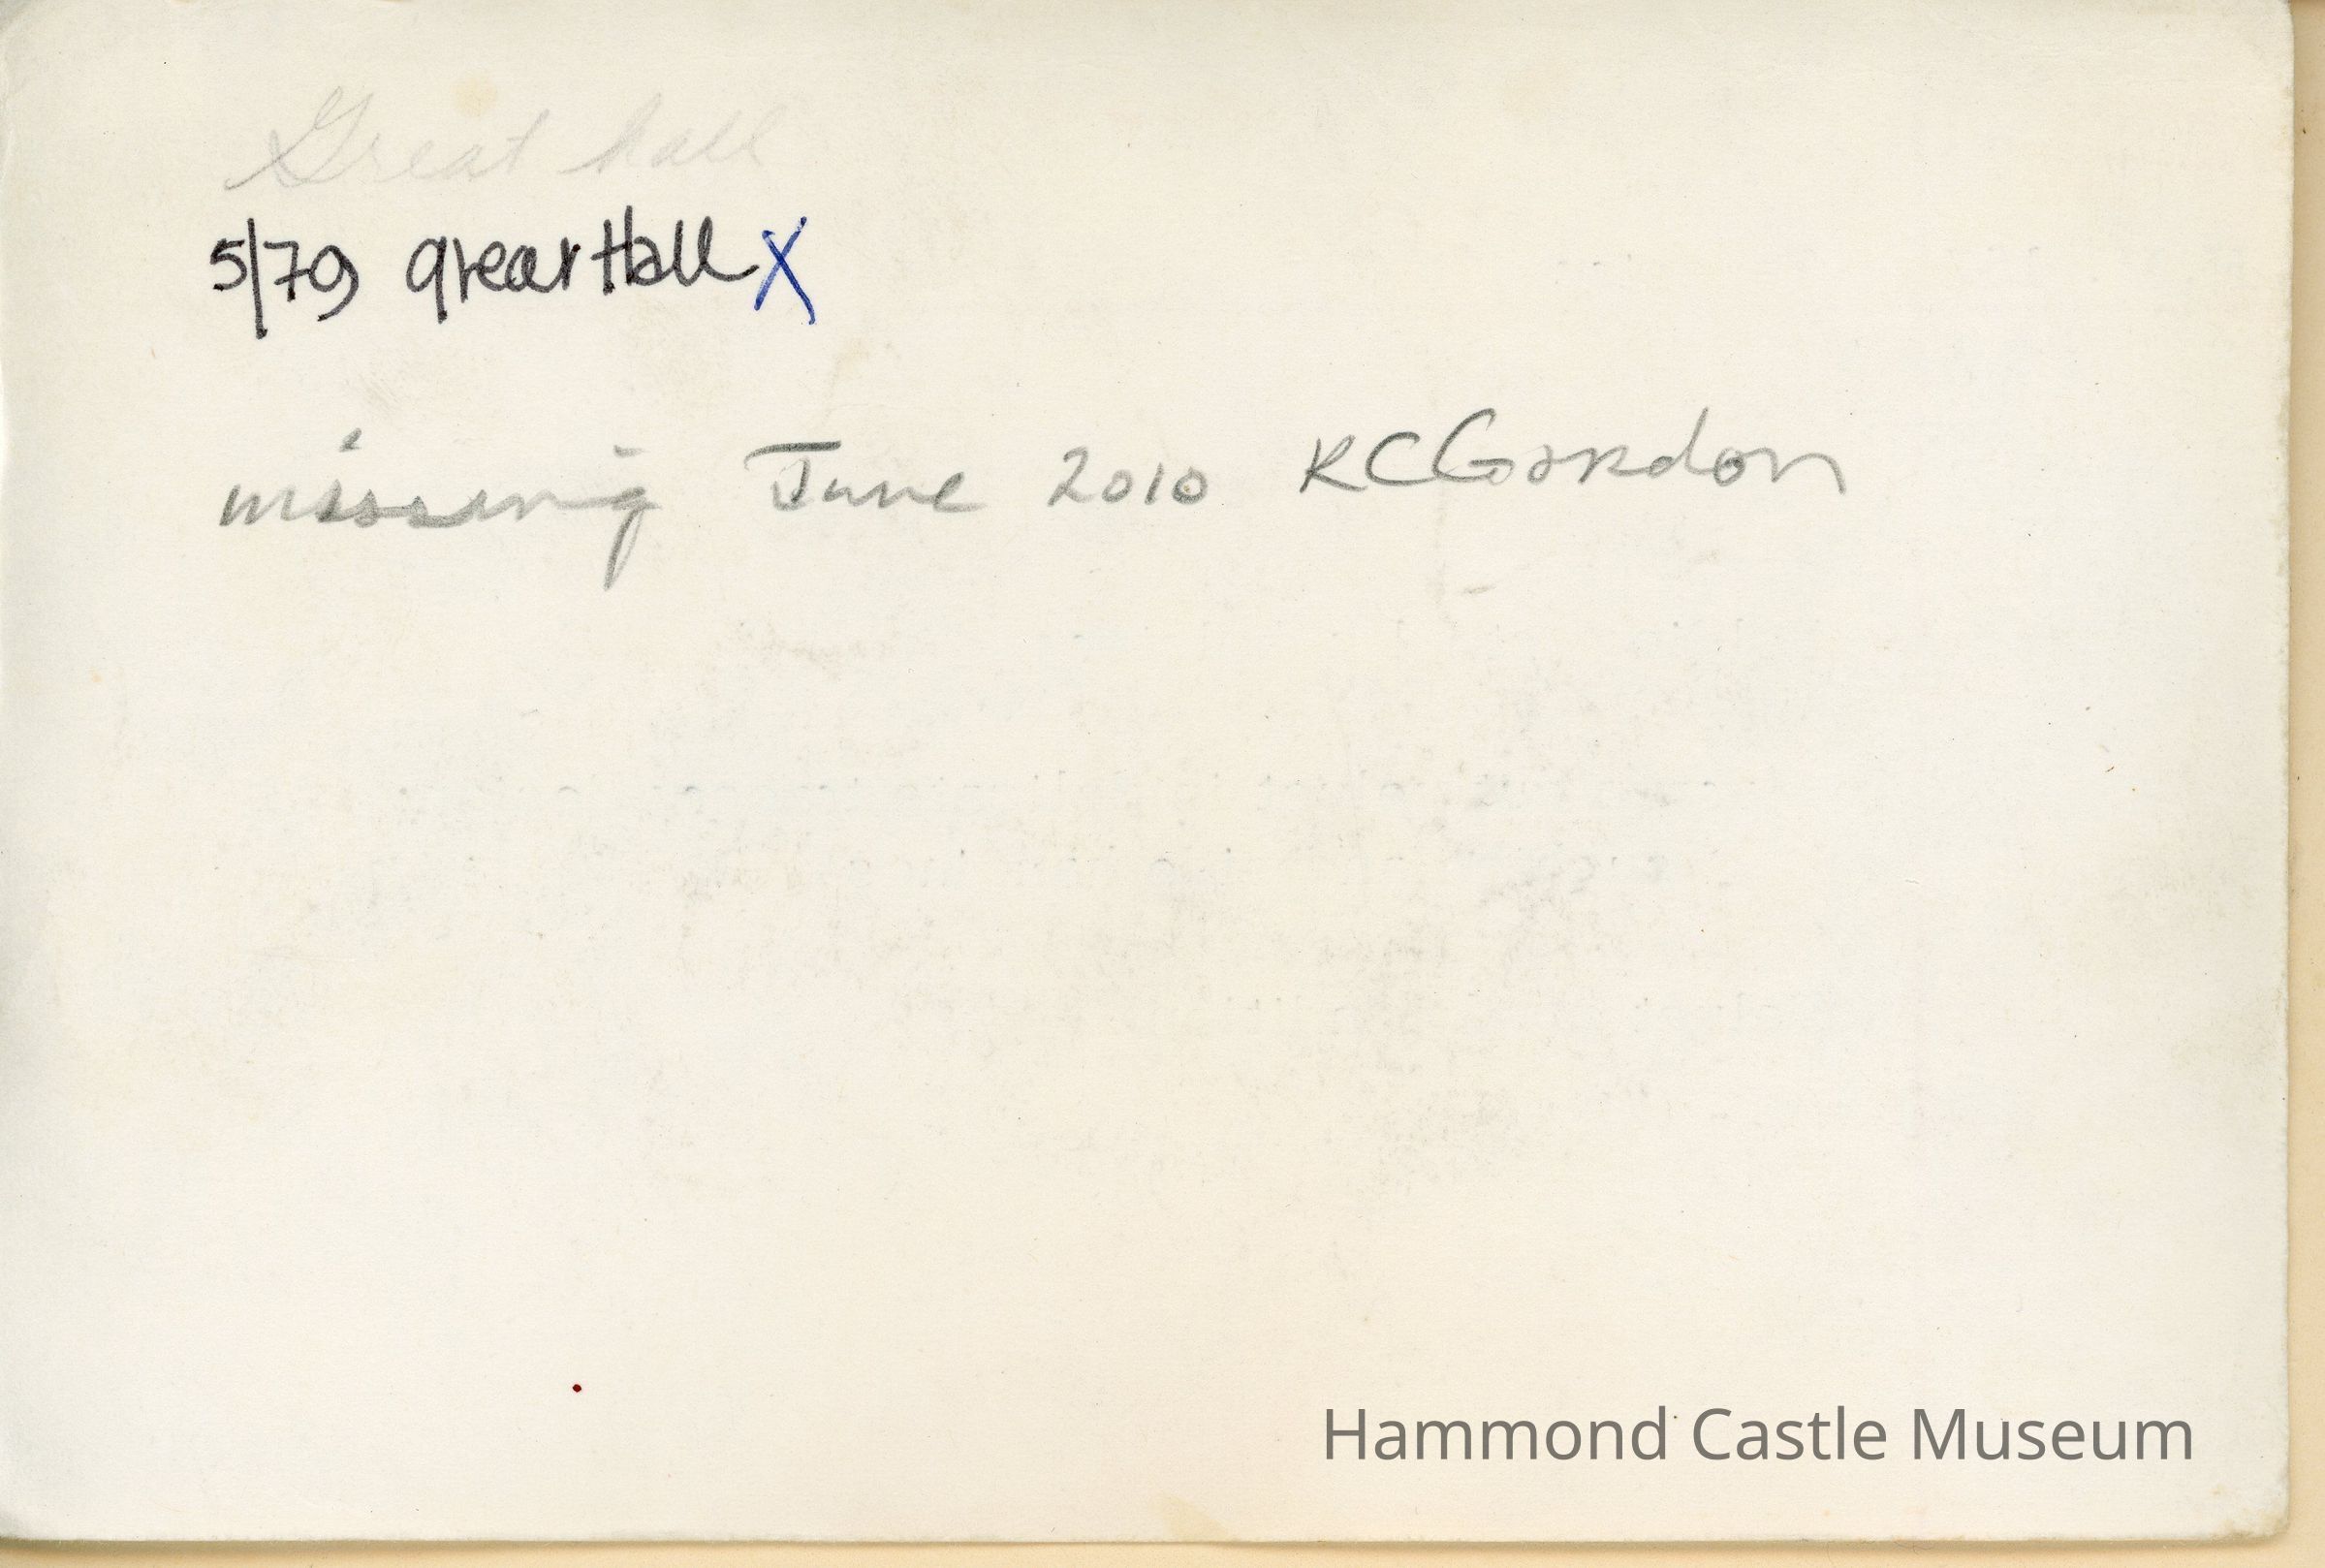 Great hall
5/79 great Hall X
missing June 2010 KCGordon
Hammond Castle Museum